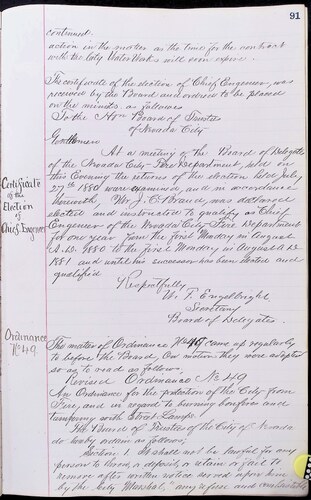 91
continued
action in the matter as the time for the contract
with the City Water Works will soon expire.
The certificate of the election of Chief Engineer, was
received by the Board and ordered to be placed
on the minutes as follows
To the Hon Board of Trustees
of Nevada City
Gentlemen
At a meeting of the Board of Delegates
of the Nevada City Fire Department, held on
this Evening the returns of the election held July
27th 1880 were examined, and in accordance
therewith Mr J. C. Brand, was declared
elected and instructed to qualify as Chief
Engineer of the Nevada City Fire Department
for one year from the first Monday in August
A.D. 1880 to the first Monday in August A D
1881 and until his successor has been elected and
qualified
Respectfully
W. F. Englebright
Secretary
Board of Delegates
Certificate
of the
Election
of
Chief Engineer
Ordinance
No 49
The matter of Ordinance No 49 came up regularly
to before the Board, On motion they were adopted
so as to read as follows,
Revised Ordinance No 49
An Ordinance for the protection of the City from
Fire, and in regard to burning bonfires and
tampering with Street Lamps
The Board of Trustees of the City of Nevada
do hereby ordain as follows;
Section 1. It shall not be lawful for any
person to throw, or deposit, or retain, or fail to
remove after written notice served upon him
by the City Marshal, any refuse and combustible